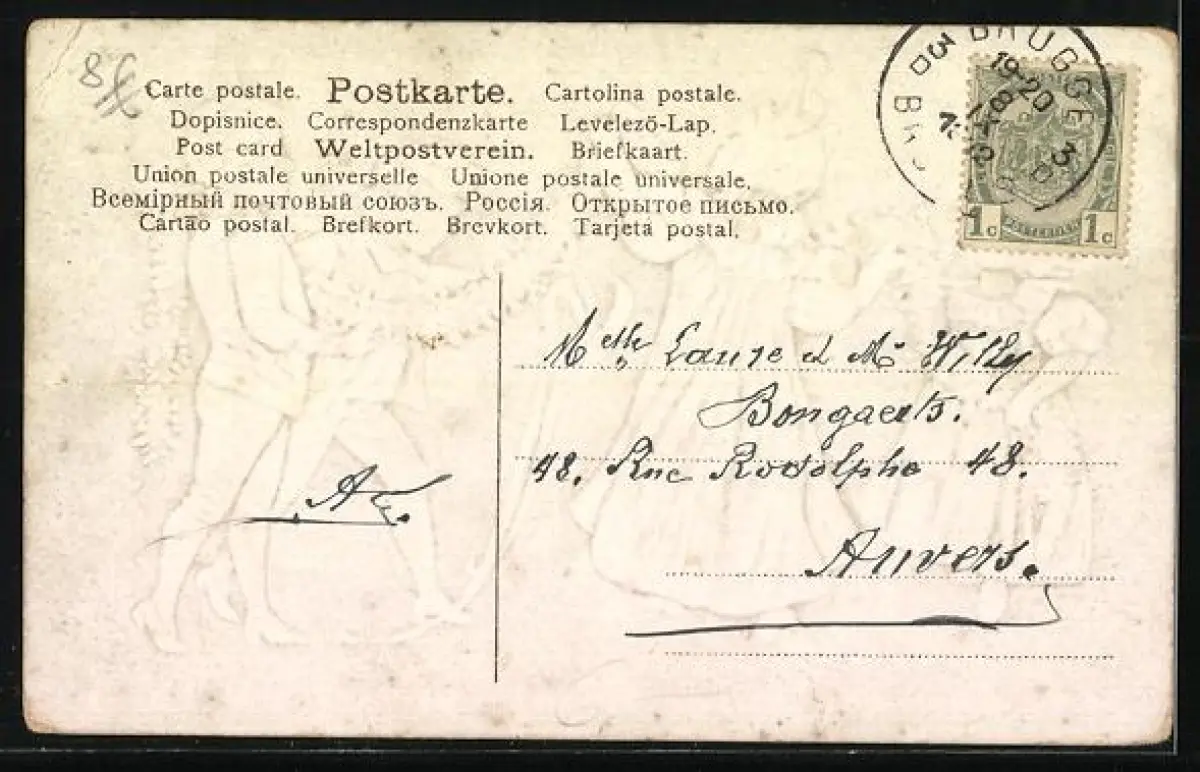 Carte postale. Postkarte. Cartolina postale.
Dopisnice. Correspondenzkarte Levelező-Lap.
Post card Weltpostverein. Briefkaart.
Union postale universelle Unione postale universale.
Всемірный почтовый союзъ. Россія. Открытое письмо.
Cartão postal. Brefkort. Brevkort. Tarjeta postal.
BRUGGE
19-20
1c 1c
Melle Laure et Mr Willy
Bongaerts.
48. Rue Rodolphe 48.
Anvers.